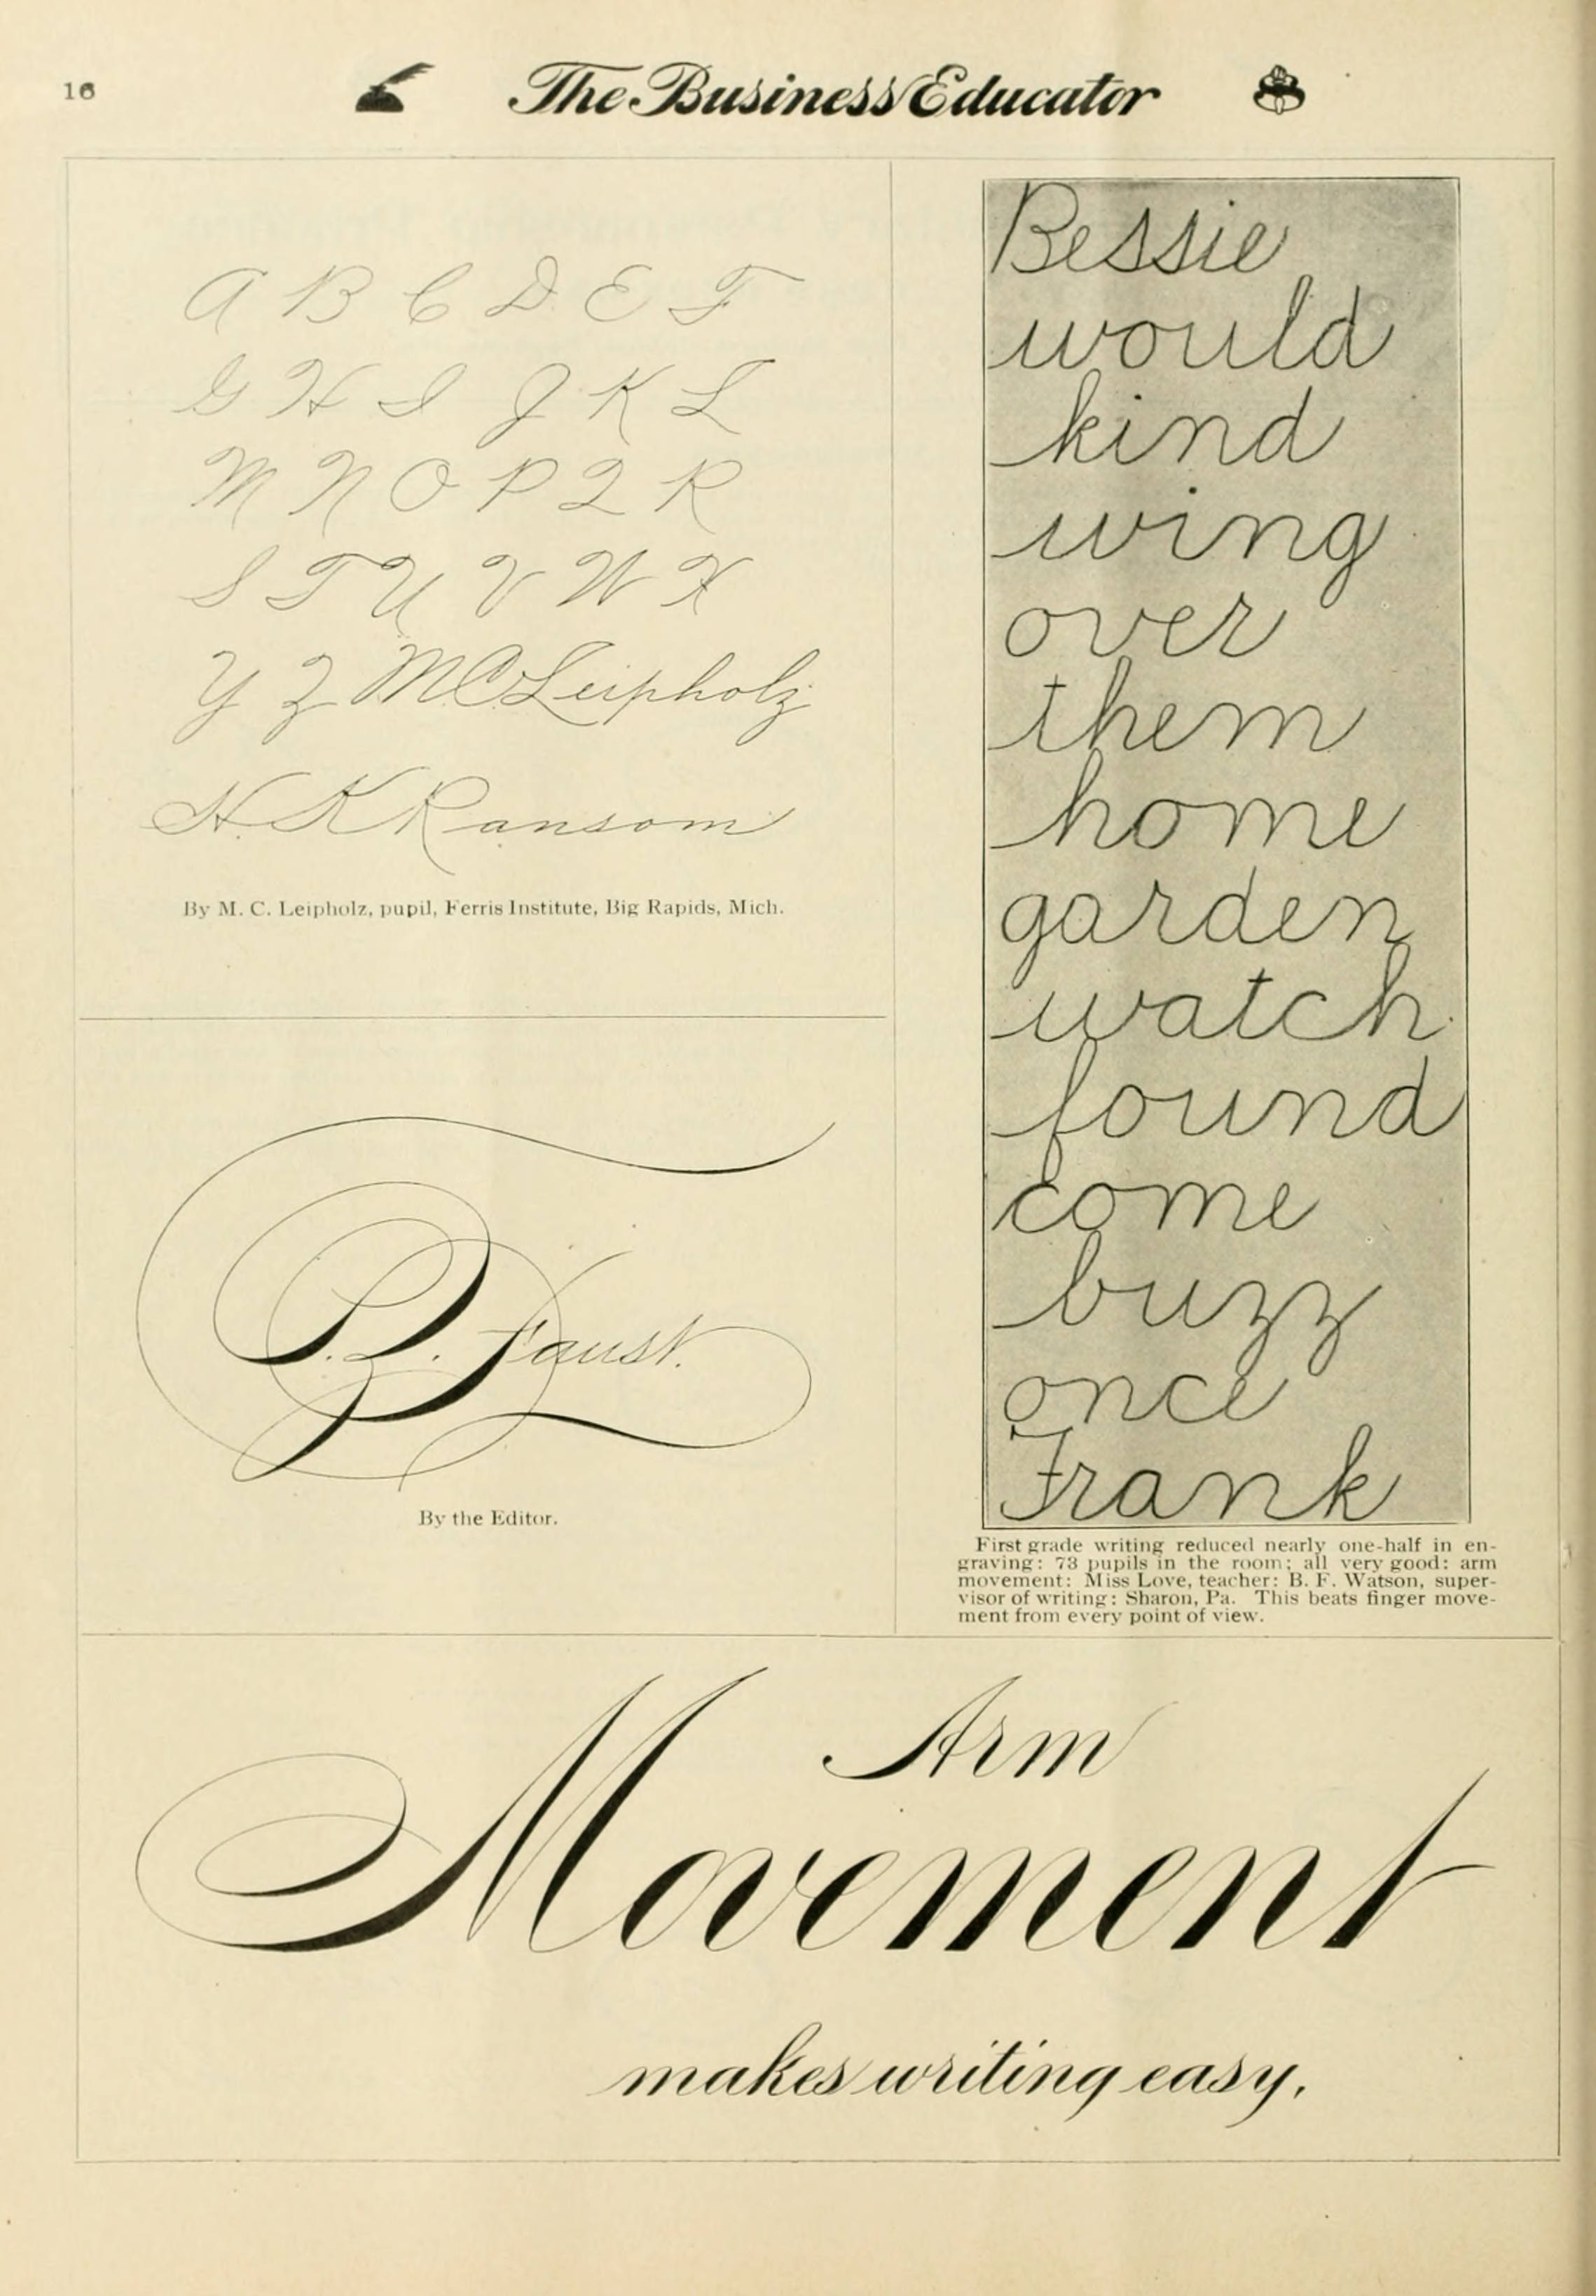 16
The Business Educator
A B C D E F
G H I J K L
M N O P Q R
S T U V W X
Y Z M C Leipholz
H. K Ransom
By M. C. Leipholz, pupil, Ferris Institute, Big Rapids, Mich.
Faust.
By the Editor.
Bessie
would
kind
wing
over
them
home
garden
watch
found
come
buzz
once
Frank
First grade writing reduced nearly one-half in en-
graving: 73 pupils in the room; all very good: arm
movement: Miss Love, teacher: B. F. Watson, super-
visor of writing: Sharon, Pa. This beats finger move-
ment from every point of view.
Arm
Movement
makes writing easy.